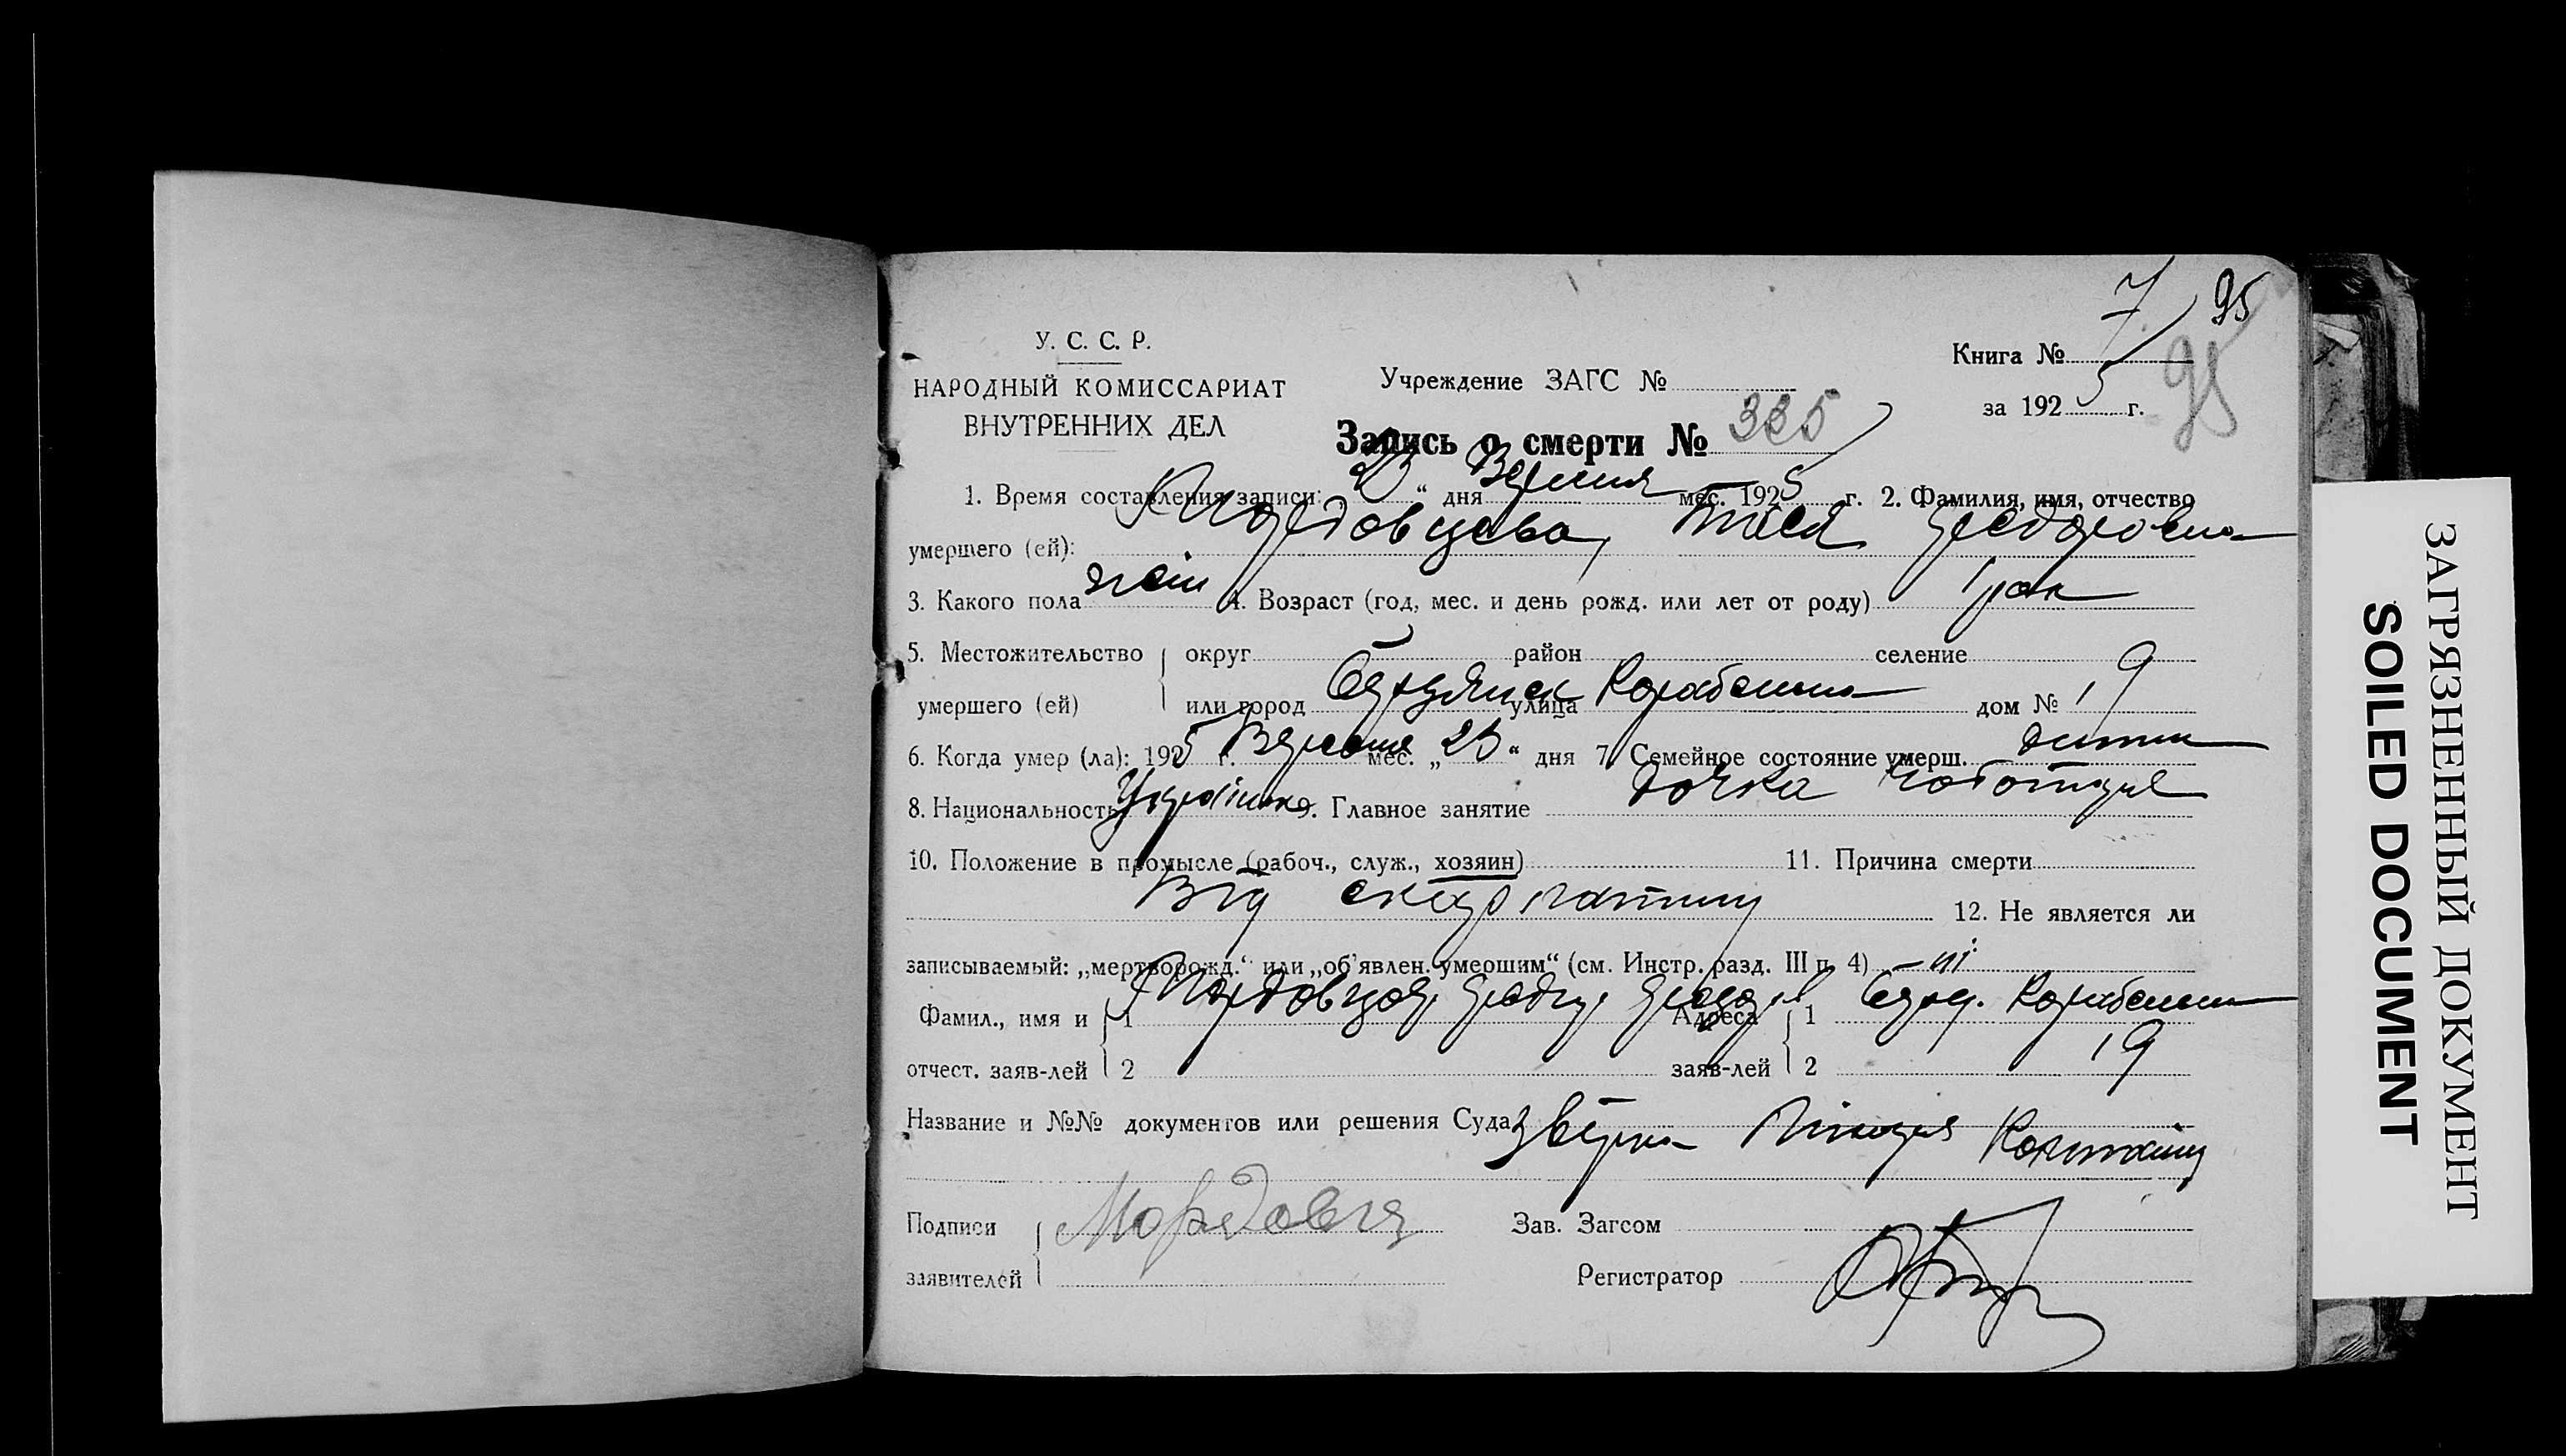 7 95
У. С. С. Р.
Книга № 95
НАРОДНЫЙ КОМИССАРИАТ Учреждение ЗАГС №
за 1925 г.
ВНУТРЕННИХ ДЕЛ
Запись о смерти № 335
1. Время составления записи: 23 “ дня Вересня мес. 1925 г. 2. Фамилия, имя, отчество
умершего (ей): Мордовцева, Таїсія Федоровна
3. Какого пола жін 4. Возраст (год, мес. и день рожд. или лет от роду) 1 рок
5. Местожительство округ район селение
умершего (ей) или город улица Корабельна дом № 19
6. Когда умер (ла): 1925 г. Вересня мес. „ 23 “ дня 7. Семейное состояние умерш. дитина
8. Национальность Українка 9. Главное занятие дочка
10. Положение в промысле (рабоч., служ., хозяин) 11. Причина смерти
Від скарлатини 12. Не является ли
записываемый: „мертворожд.“ или „об’явлен. умершим“ (см. Инстр. разд. III п. 4) – ні
Фамил., имя и 1 Мордовцев Федір Адреса 1 Корабельна
отчест. заяв-лей 2 заяв-лей 2 19
Название и №№ документов или решения Суда
Подписи Зав. Загсом
заявителей Регистратор
ЗАГРЯЗНЕННЫЙ ДОКУМЕНТ
SOILED DOCUMENT